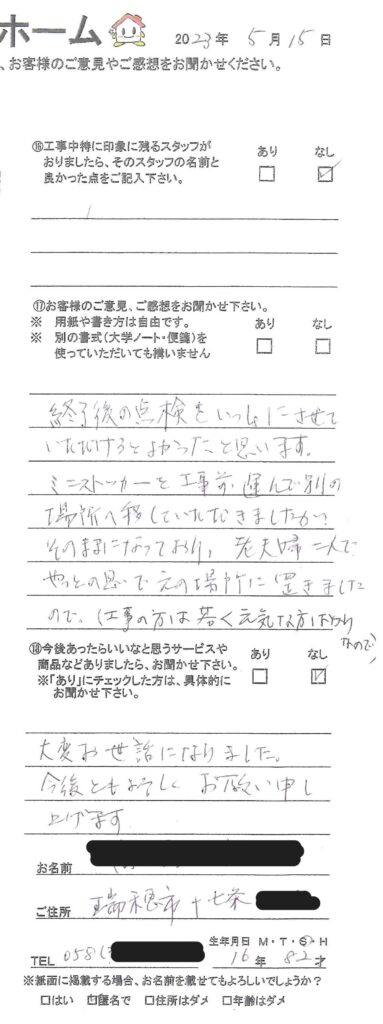 ホーム
2023年 5月 15日
、お客様のご意見やご感想をお聞かせください。
⑯工事中特に印象に残るスタッフが
おりましたら、そのスタッフの名前と
良かった点をご記入下さい。
あり なし
⑰お客様のご意見、ご感想をお聞かせ下さい。
※ 用紙や書き方は自由です。
※ 別の書式(大学ノート・便箋)を
使っていただいても構いません
あり なし
終了後の点検をいっしょにさせて
いただけるとよかったと思います。
ミニストッカーを工事前、運んで別の
場所へ移していただきましたが、
そのままになっており、老夫婦二人で
やっとの思いで元の場所に置きました
ので、(工事の方は若く元気な方ばかり
なので)
⑱今後あったらいいなと思うサービスや
商品などありましたら、お聞かせ下さい。
※「あり」にチェックした方は、具体的に
お聞かせ下さい。
あり なし
大変お世話になりました。
今後ともよろしくお願い申し
上げます
お名前
ご住所 瑞穂市十七条
生年月日 M・T・S・H
TEL 058 16年 82才
※紙面に掲載する場合、お名前を載せてもよろしいでしょうか?
□はい □匿名で □住所はダメ □年齢はダメ